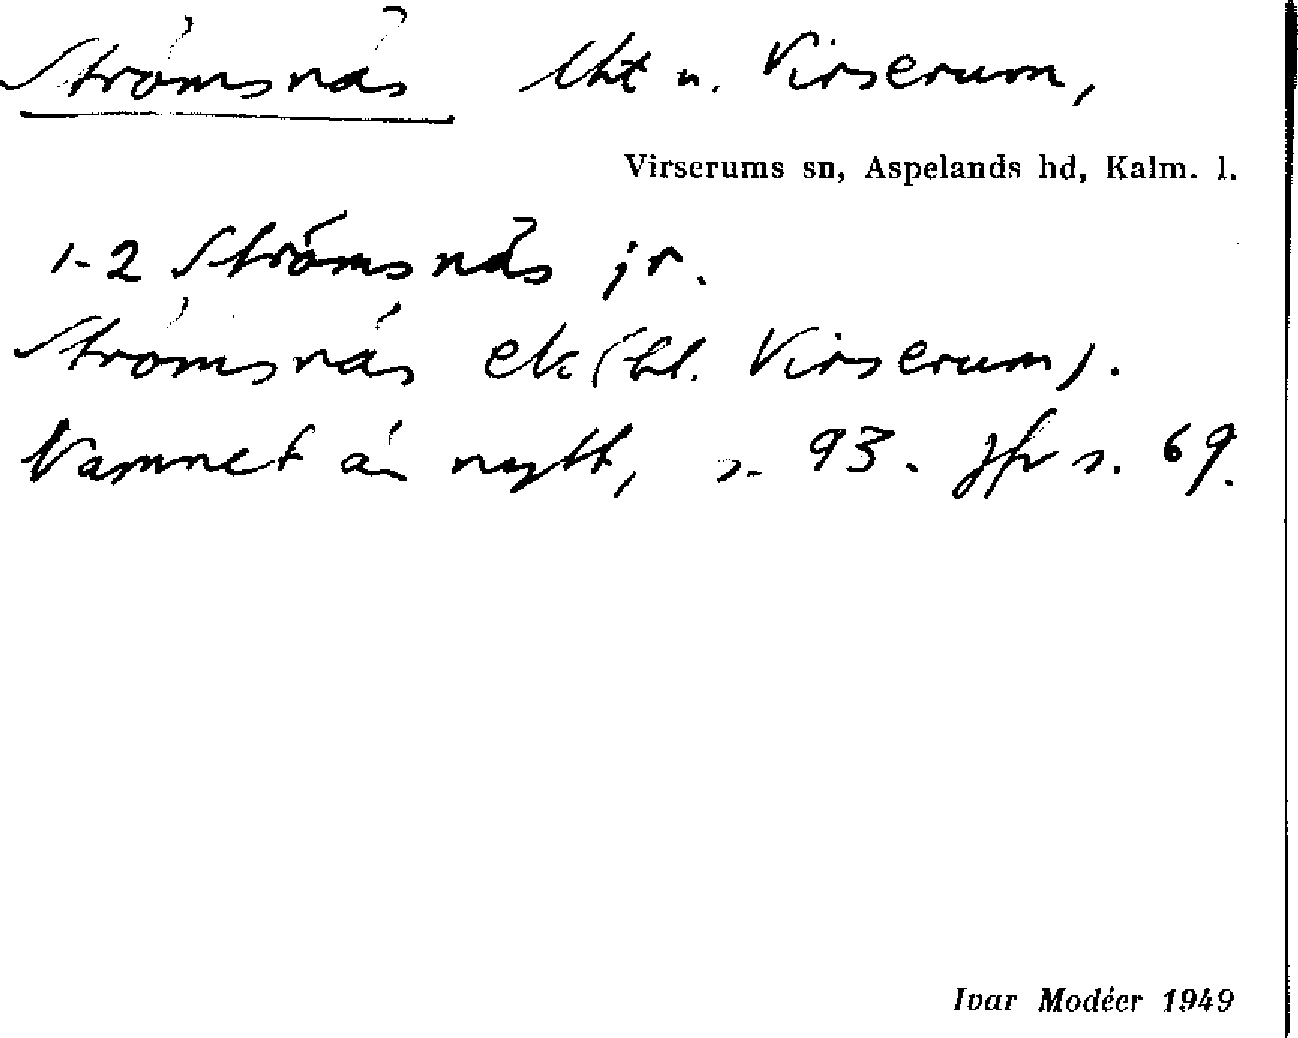 Strömsnäs lht u. Virserum,
Virserums sn, Aspelands hd, Kalm. l.
1-2 Strömsnäs jr.
Strömsnäs ek (bl. Virserum).
Namnet är nytt, s. 93. Jfr s. 69.
Ivar Modéer 1949